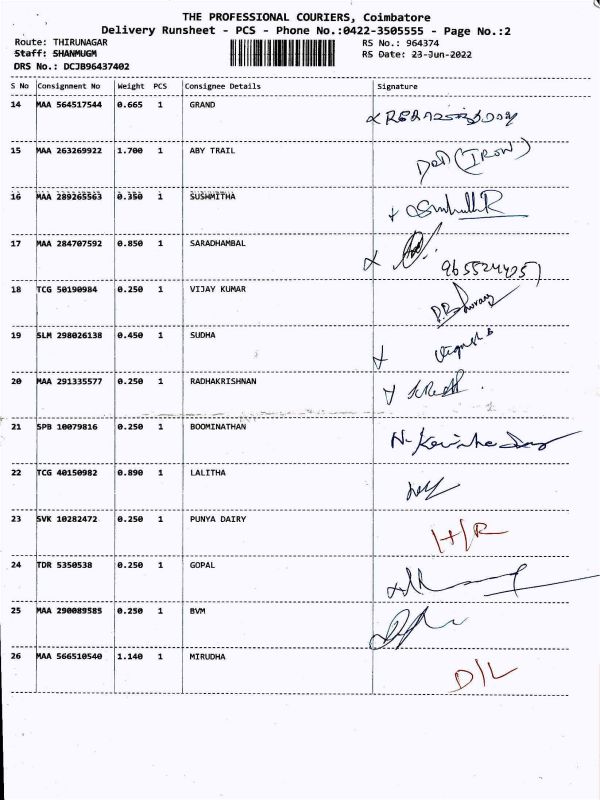 THE PROFESSIONAL COURIERS, Coimbatore
Delivery Runsheet - PCS - Phone No.:0422-3505555 - Page No.:2
Route: THIRUNAGAR RS No.: 964374
Staff: SHANMUGM RS Date: 23-Jun-2022
DRS No.: DCJB96437402
S No Consignment No Weight PCS Consignee Details Signature
14 MAA 564517544 0.665 1 GRAND
15 MAA 263269922 1.700 1 ABY TRAIL
16 MAA 289265563 0.350 1 SUSHMITHA
17 MAA 284707592 0.850 1 SARADHAMBAL
18 TCG 50190984 0.250 1 VIJAY KUMAR
19 SLM 298026138 0.450 1 SUDHA
20 MAA 291335577 0.250 1 RADHAKRISHNAN
21 SPB 10079816 0.250 1 BOOMINATHAN
22 TCG 40150982 0.890 1 LALITHA
23 SVK 10282472 0.250 1 PUNYA DAIRY H/R
24 TDR 5350538 0.250 1 GOPAL
25 MAA 290089585 0.250 1 BVM
26 MAA 566510540 1.140 1 MIRUDHA D/L